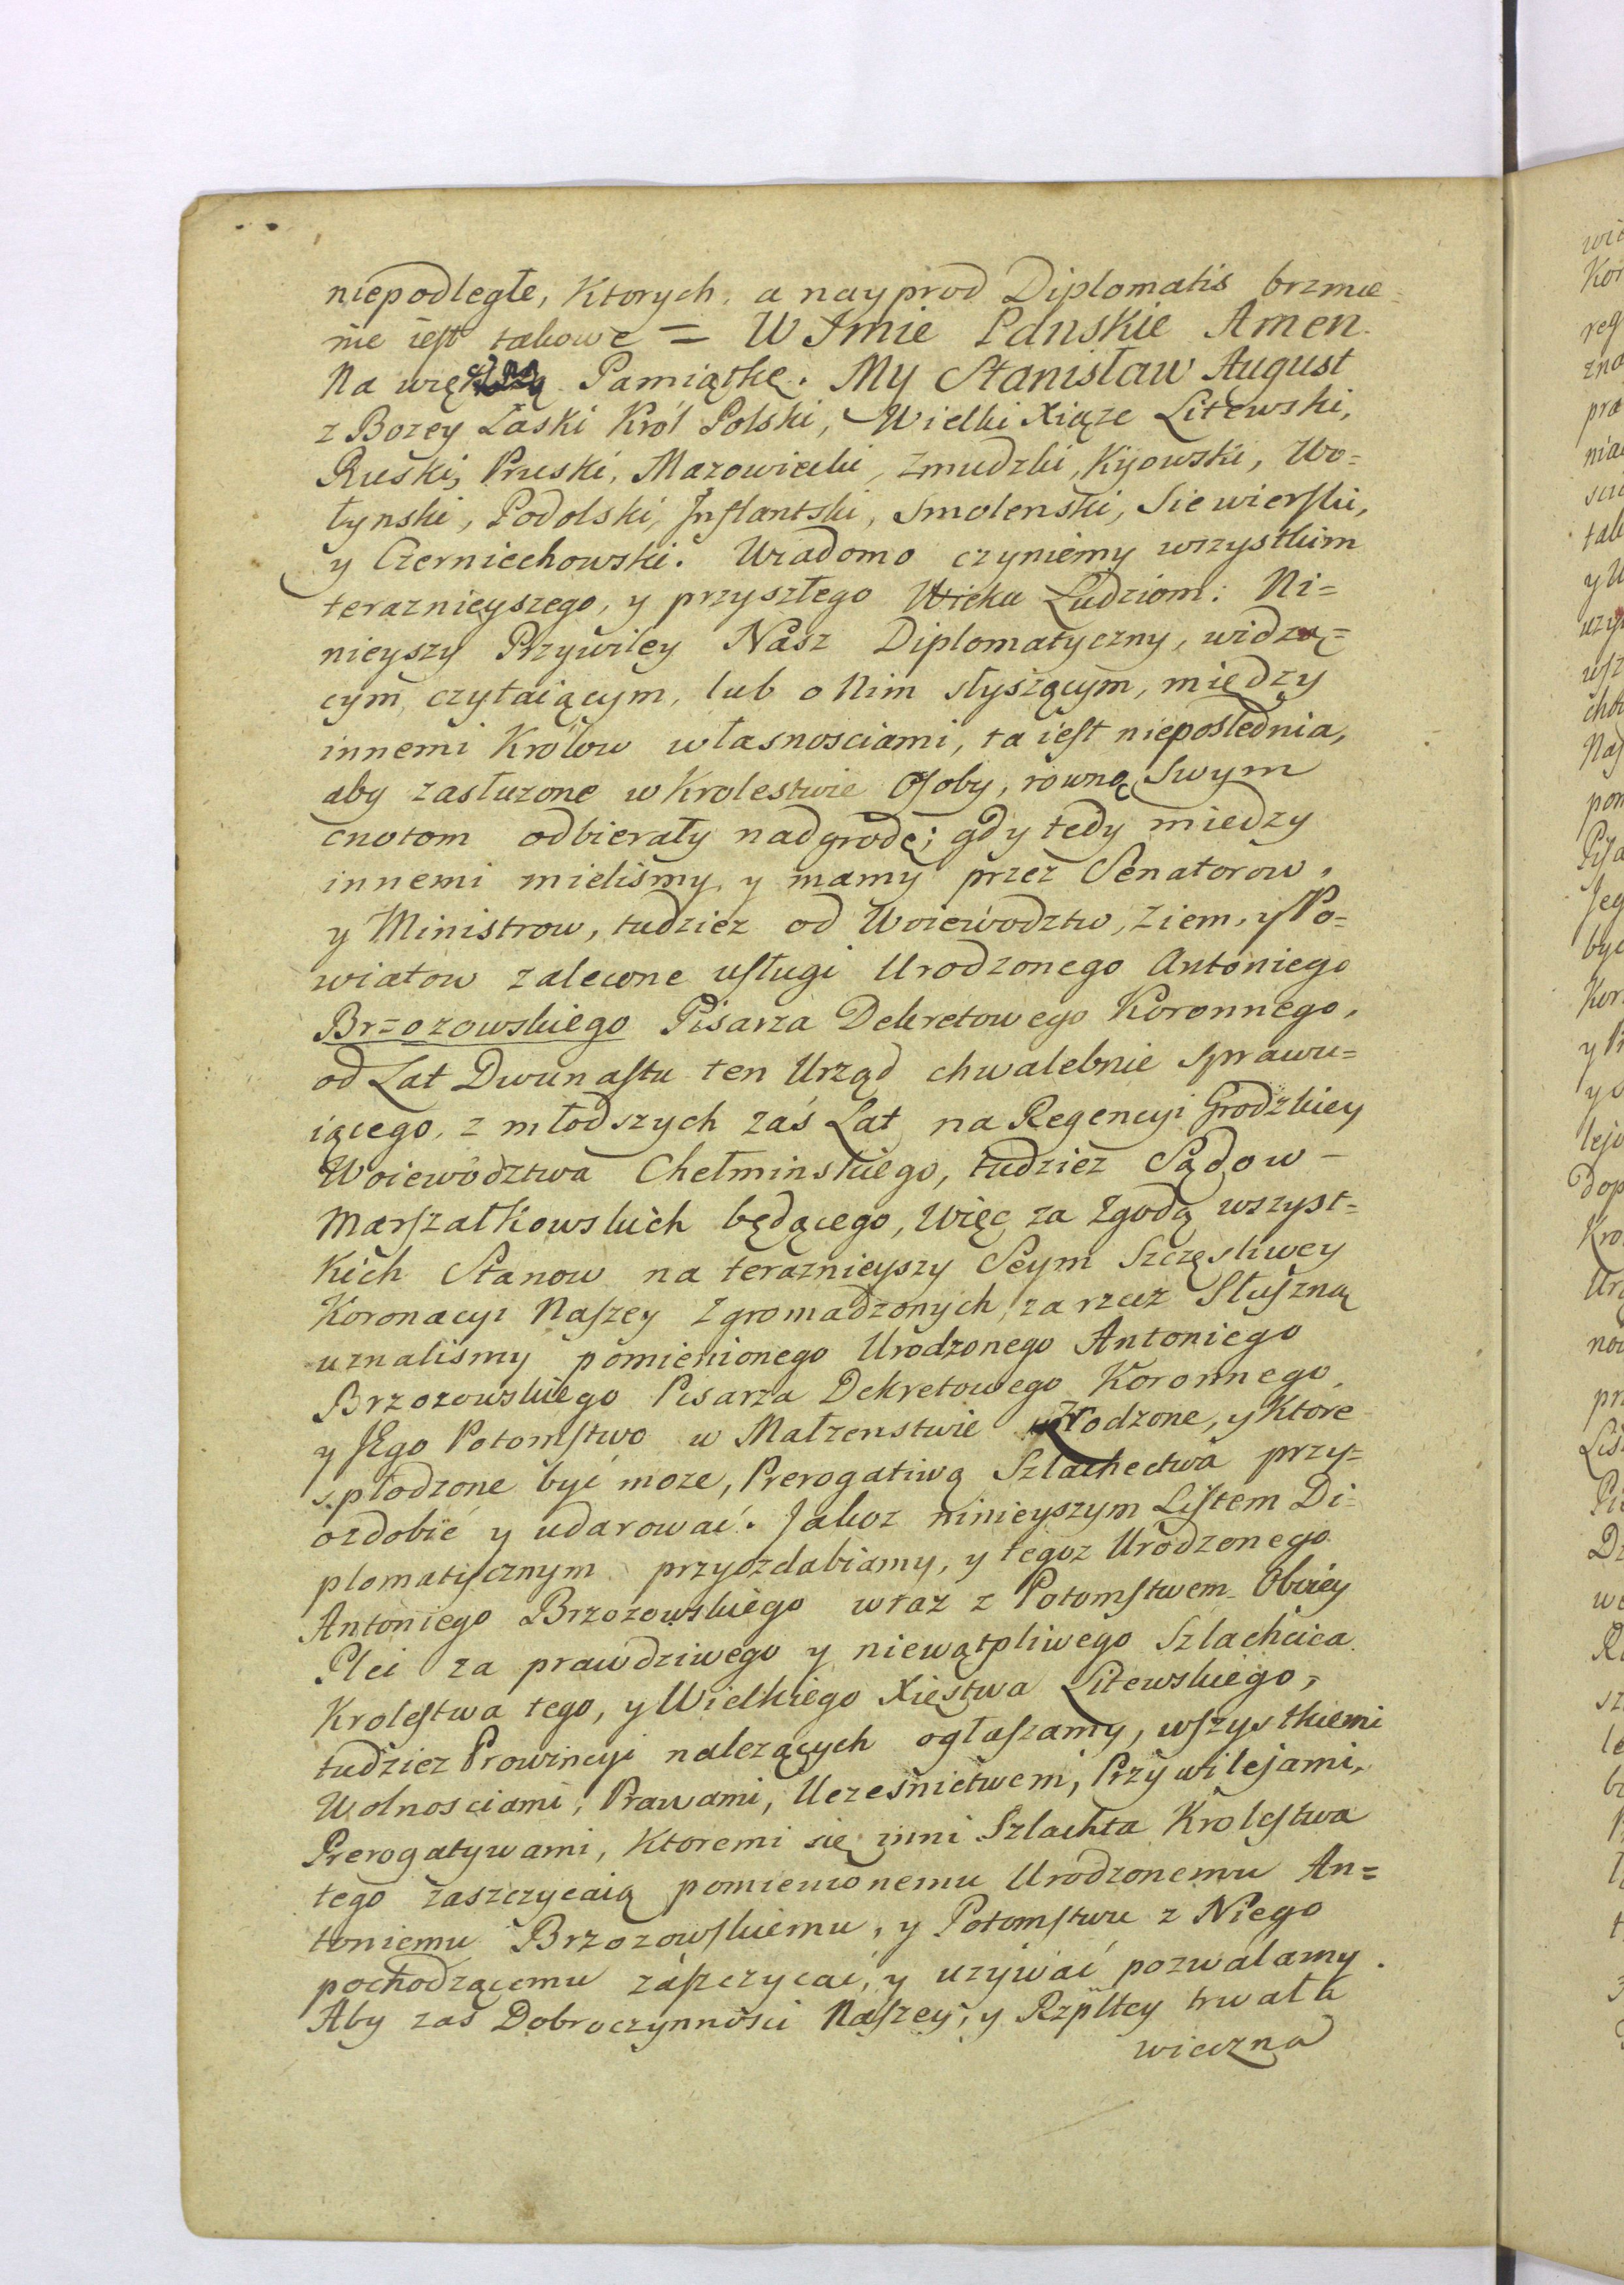 niepodległe, Ktorych, a nayprod Diplomatis brzmie=
nie iest takowe = W Imie Panskie Amen.
Na wię Pamiątkę. My Stanisław August
z Bozey Łaski Król Polski, Wielki Xiąze Litewski,
Ruski, Pruski, Mazowiecki, Zmudzki, Kijowski, Wo=
łynski, Podolski, Inflantski, Smolenski, Siewierski,
y Czerniechowski. Wiadomo czyniemy wszystkim
teraznieyszego, y przyszłego Wieku Ludziom: Ni=
nieyszy Przywiley Nasz Diplomatyczny, widzą=
cym, czytaiącym, lub o Nim słyszącym, między
innemi Królow własnosciami, ta iest nieposlednia,
aby zasłuzone w Krolestwie Osoby, rowną Swym
cnotom odbierały nadgrodę; gdy tedy miedzy
innemi mielismy, y mamy przez Senatorow,
y Ministrow, tudziez od Woiewodztw, Ziem, y Po=
wiatow zalecone usługi Urodzonego Antoniego
Brzozowskiego Pisarza Dekretowego Koronnego,
od Lat Dwunastu ten Urząd chwalebnie sprawu=
iącego, z młodszych zaś Lat na Regencyi Grodzkiey
Woiewodztwa Chełminskiego, tudziez Sądow
Marszałkowskich będącego, Więc za Zgodą wszyst=
Kich Stanow na teraznieyszy Seym Szczęsliwey
Koronacyi Naszey Zgromadzonych, za rzecz Słuszną
uznalismy pomienionego Urodzonego Antoniego
Brzozowskiego Pisarza Dekretowego Koronnego,
y Jego Potomstwo w Małzenstwie Zrodzone, y Ktore
spłodzone być moze, Prerogatiwą Szlachectwa przy=
ozdobić y udarować. Jakoz ninieyszym Listem Di=
plomatycznym przyozdabiamy, y tegoz Urodzonego
Antoniego Brzozowskiego wraz z Potomstwem Oboiey
Płci za prawdziwego y niewątpliwego Szlachcica
Krolestwa tego, y Wielkiego Xięstwa Litewskiego,
tudziez Prowincyi nalezących ogłaszamy, wszystkiemi
Wolnosciami, Prawami, Uczesnictwem, Przywilejami,
Prerogatywami, Ktoremi się inni Szlachta Krolestwa
tego zaszczycaią pomienionemu Urodzonemu An=
toniemu Brzozowskiemu, y Potomstwu z Niego
pochodzącemu zaszczycać, y uzywać pozwalamy.
Aby zas Dobroczynnosci Naszey, y Rzpltey trwała
wieczna